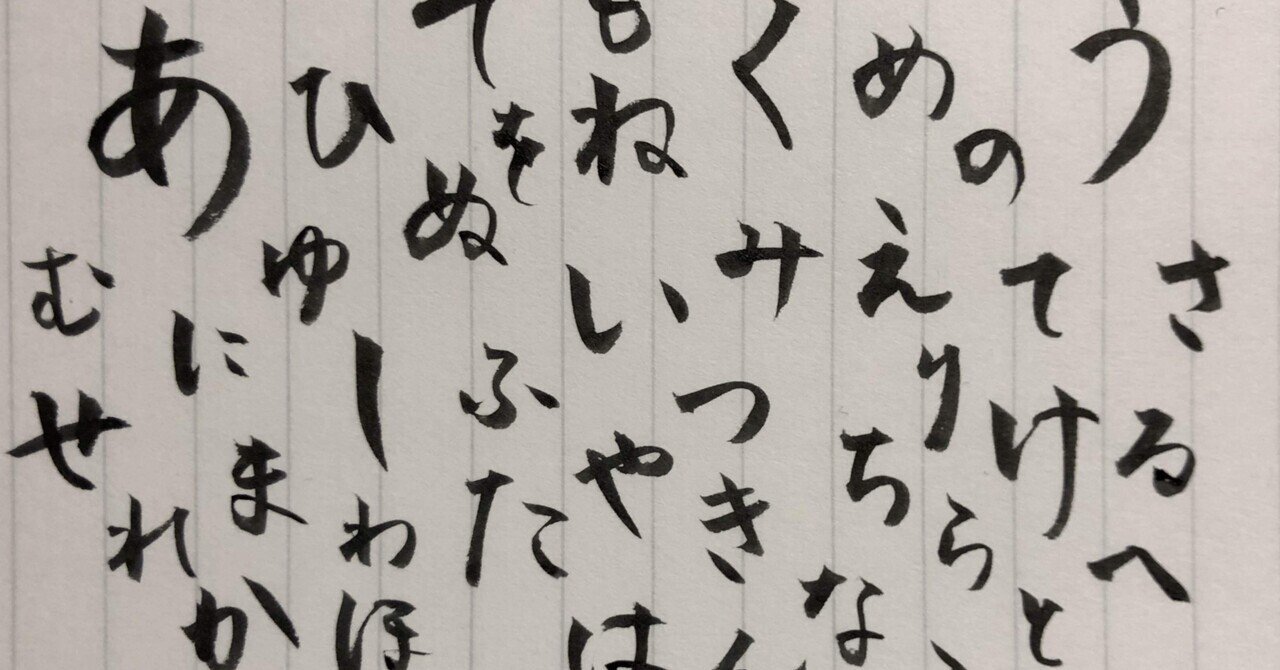 うさるへ
めのてけと
えりちらな
くみつき
もねいやは
をぬふた
ひゆしわほ
あにまれか
むせ